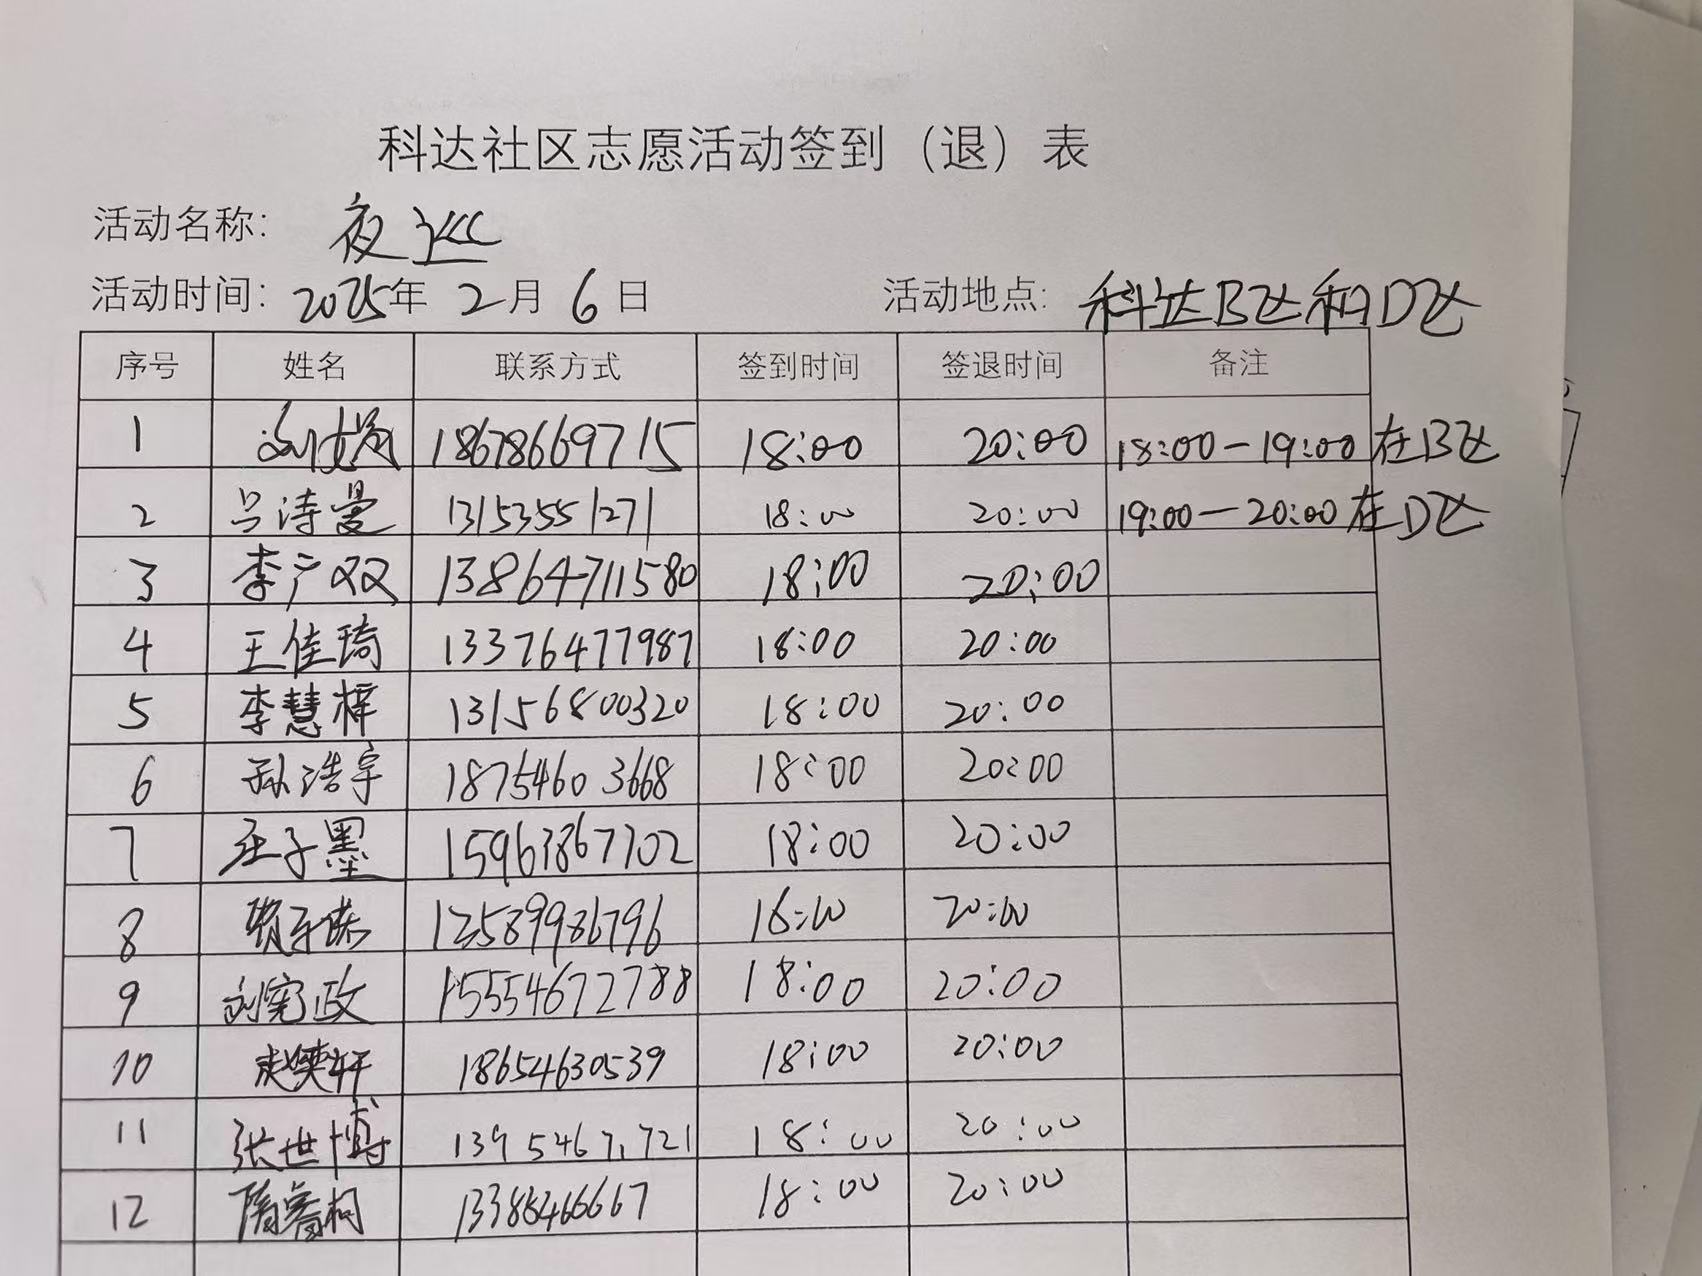 科达社区志愿活动签到（退）表
活动名称： 夜巡
活动时间：2025年 2月 6日 活动地点：科达B区和D区
序号 姓名 联系方式 签到时间 签退时间 备注
1 18678669715 18:00 20:00 18:00－19:00 在B区
2 吕诗曼 13153551271 18:00 20:00 19:00－20:00 在D区
3 李产双 13864711580 18:00 20:00
4 王佳琦 13376477987 18:00 20:00
5 李慧梓 13156800320 18:00 20:00
6 孙浩宇 18754603668 18:00 20:00
7 王子墨 15963867702 18:00 20:00
8 20:00
9 刘宪政 15554672788 18:00 20:00
10 赵奕轩 18654630539 18:00 20:00
11 张世博 18:00 20:00
12 隋睿柯 18:00 20:00